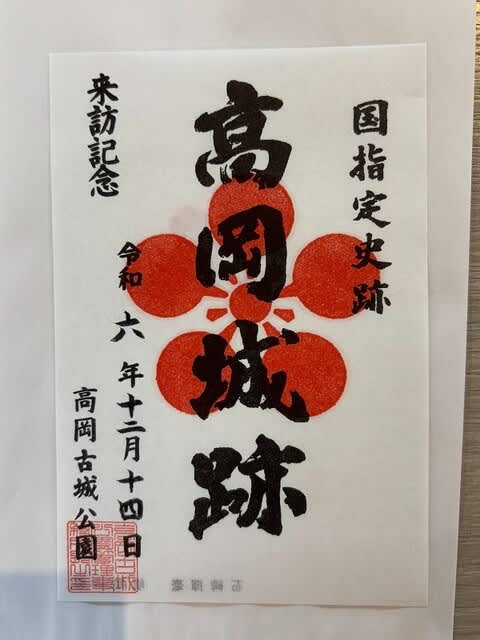 国指定史跡
高岡城跡
来訪記念
令和六年十二月十四日
高岡古城公園